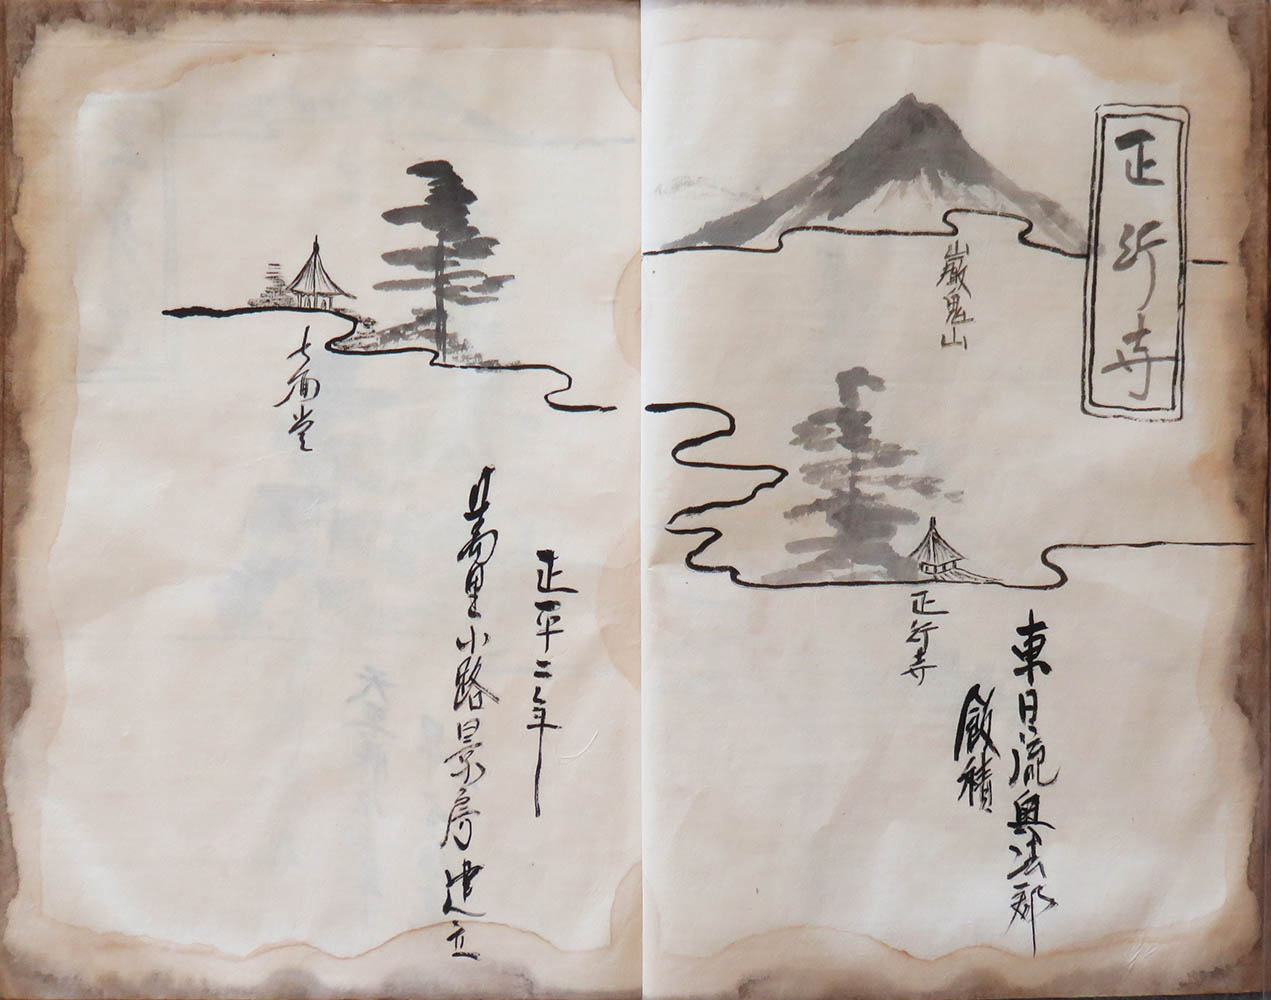 正行寺
巌鬼山
東日流奥法郡
飯積
正行寺
正平二年
萬里小路景房建立
七面堂